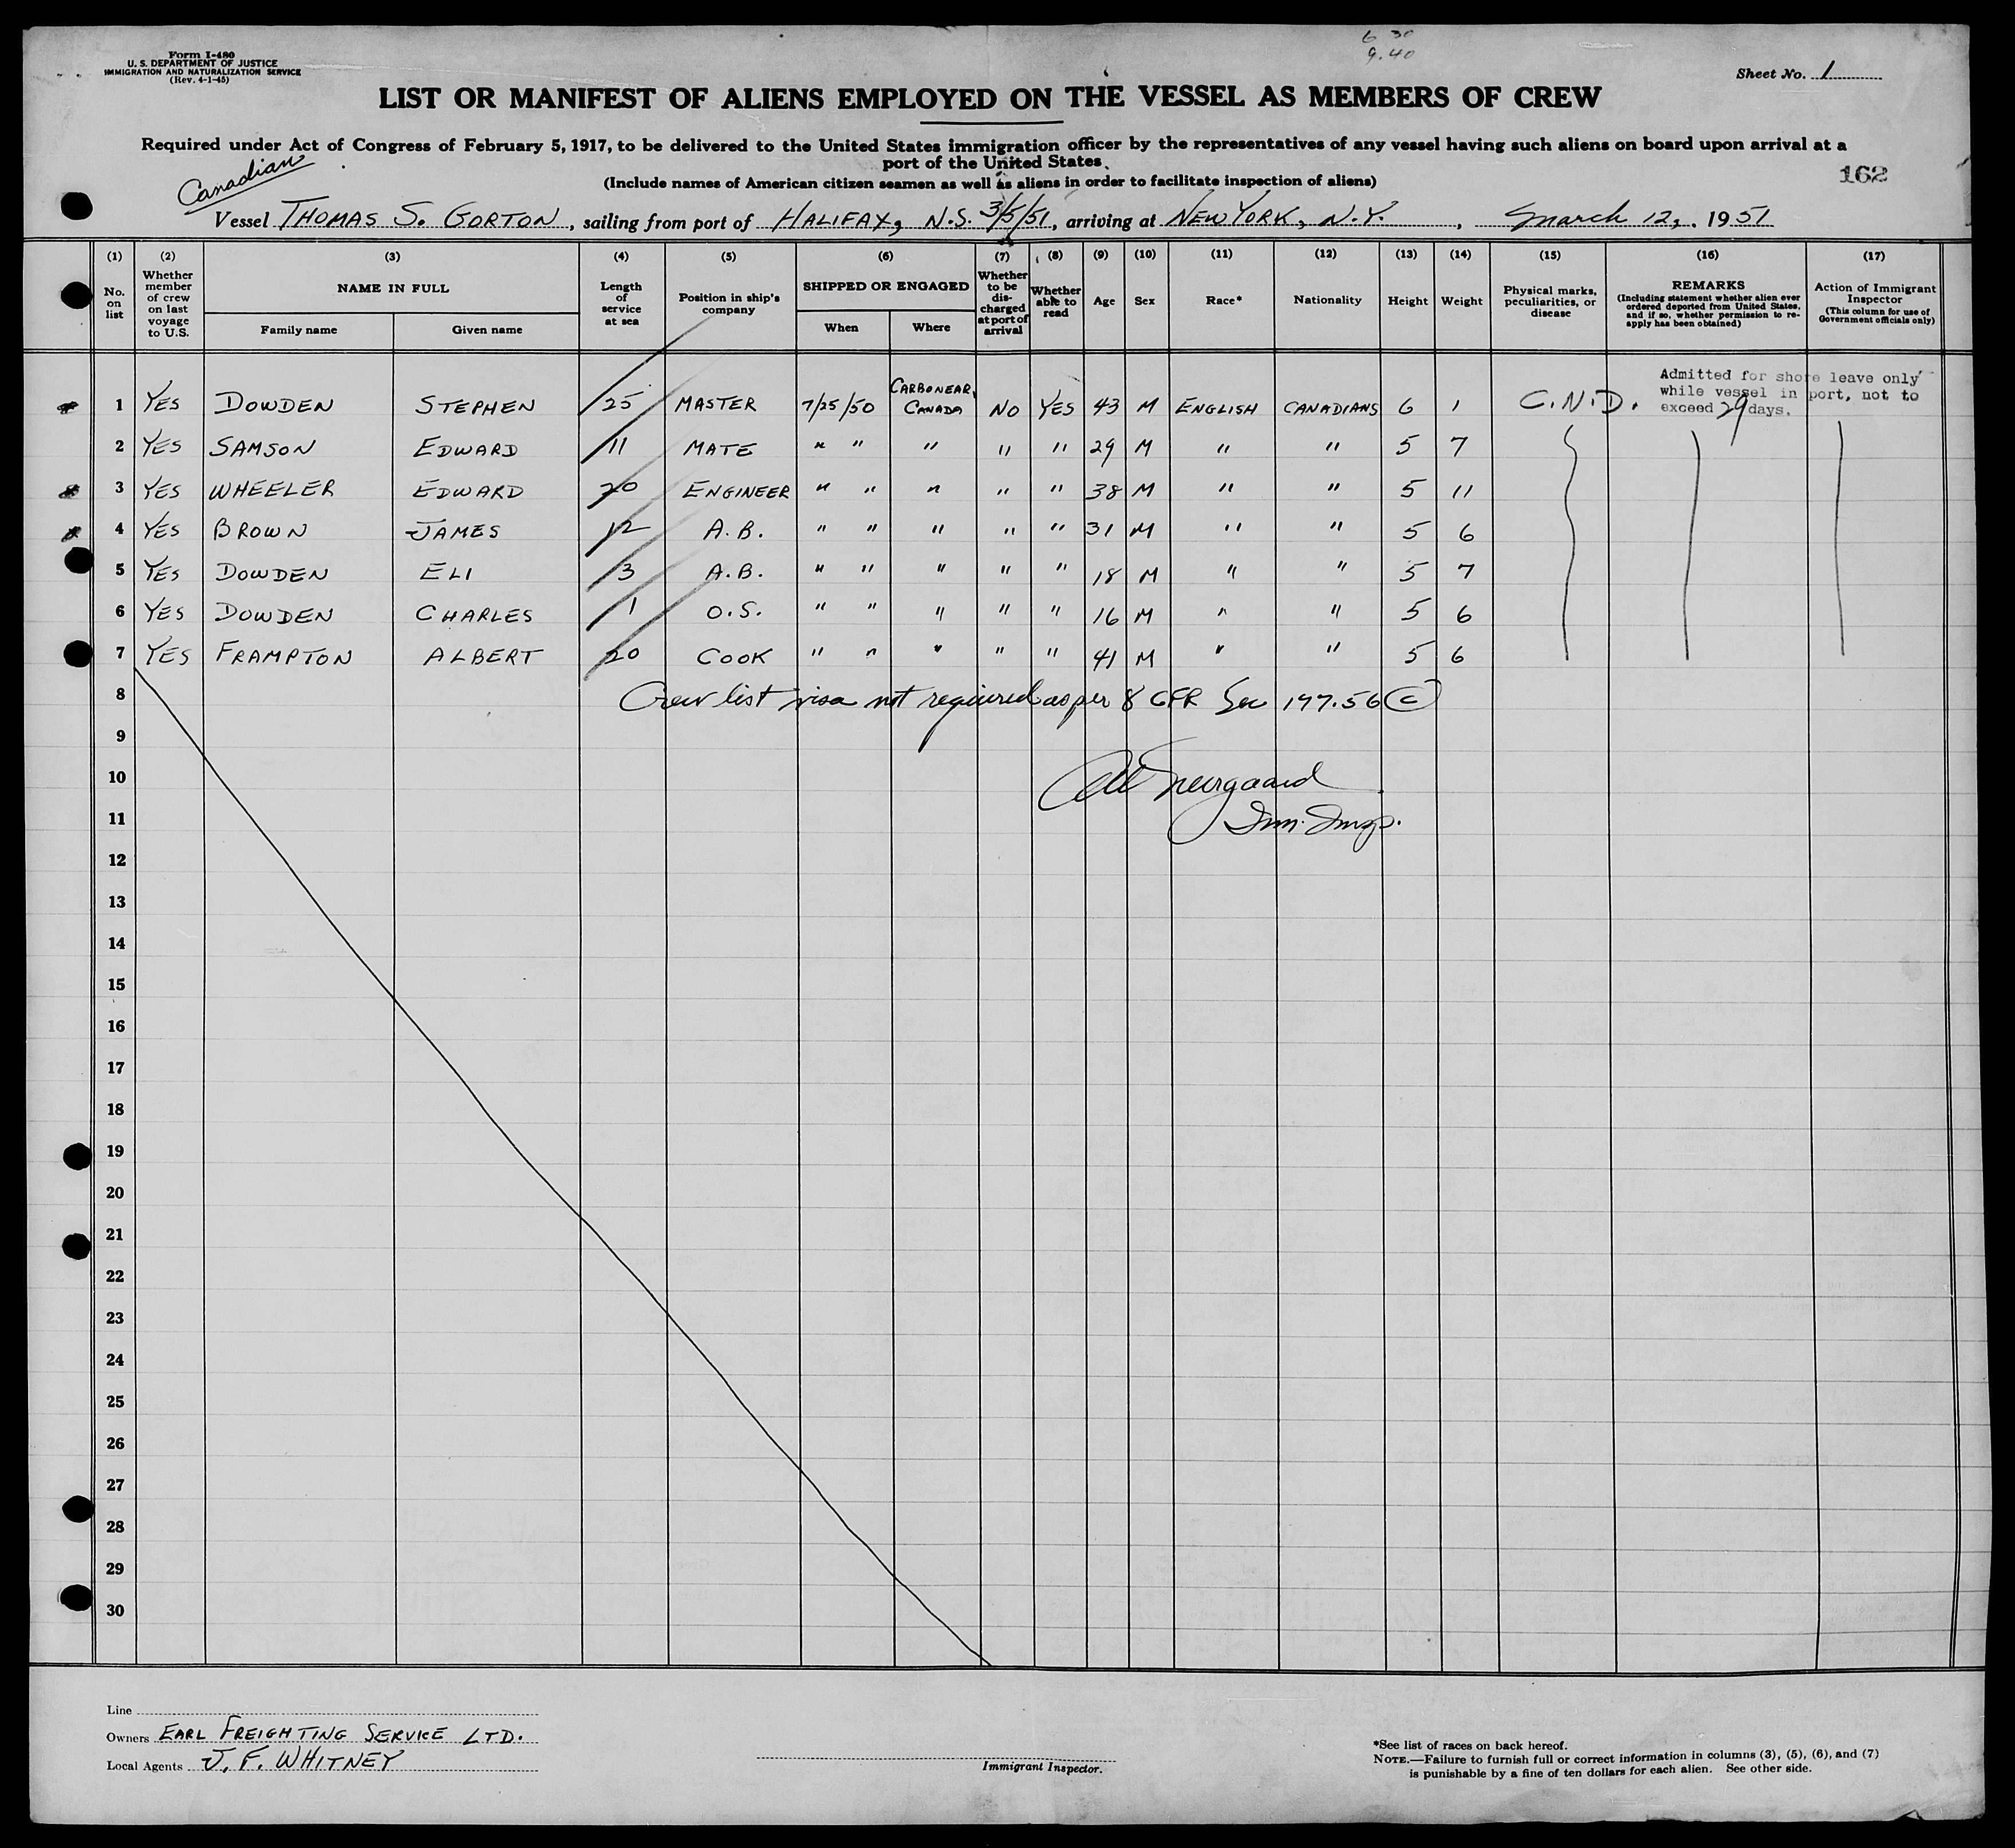 6 30
9.40
Form I-480
U. S. DEPARTMENT OF JUSTICE
IMMIGRATION AND NATURALIZATION SERVICE
(Rev. 4-1-45)
Sheet No. 1
LIST OR MANIFEST OF ALIENS EMPLOYED ON THE VESSEL AS MEMBERS OF CREW
Required under Act of Congress of February 5, 1917, to be delivered to the United States immigration officer by the representatives of any vessel having such aliens on board upon arrival at a
port of the United States
(Include names of American citizen seamen as well as aliens in order to facilitate inspection of aliens)
162
Canadian
Vessel THOMAS S. GORTON, sailing from port of HALIFAX, N.S. 3/5/51, arriving at NEW YORK, N.Y., March 12, 1951
(1) (2) (3) (4) (5) (6) (7) (8) (9) (10) (11) (12) (13) (14) (15) (16) (17)
No. on list
Whether member of crew on last voyage to U.S.
NAME IN FULL
Family name Given name
Length of service at sea
Position in ship's company
SHIPPED OR ENGAGED
When Where
Whether to be discharged at port of arrival
Whether able to read
Age Sex Race* Nationality Height Weight
Physical marks, peculiarities, or disease
REMARKS
(Including statement whether alien ever ordered deported from United States, and if so, whether permission to re-apply has been obtained)
Action of Immigrant Inspector
(This column for use of Government officials only)
Admitted for shore leave only
while vessel in port, not to
exceed 29 days.
1 YES DOWDEN STEPHEN 25 MASTER 7/25/50 CARBONEAR, CANADA NO YES 43 M ENGLISH CANADIANS 6 1 C.N.D.
2 YES SAMSON EDWARD 11 MATE " " " " " 29 M " " 5 7
3 YES WHEELER EDWARD 20 ENGINEER " " " " " 38 M " " 5 11
4 YES BROWN JAMES 12 A.B. " " " " " 31 M " " 5 6
5 YES DOWDEN ELI 3 A.B. " " " " " 18 M " " 5 7
6 YES DOWDEN CHARLES 1 O.S. " " " " " 16 M " " 5 6
7 YES FRAMPTON ALBERT 20 COOK " " " " " 41 M " " 5 6
8 Crew list visa not required as per 8 CFR Sec 177.56 (c)
9
10
11 Imm. Insp.
12
13
14
15
16
17
18
19
20
21
22
23
24
25
26
27
28
29
30
Line
Owners EARL FREIGHTING SERVICE LTD.
Local Agents J. F. WHITNEY
Immigrant Inspector.
*See list of races on back hereof.
NOTE.—Failure to furnish full or correct information in columns (3), (5), (6), and (7)
is punishable by a fine of ten dollars for each alien. See other side.